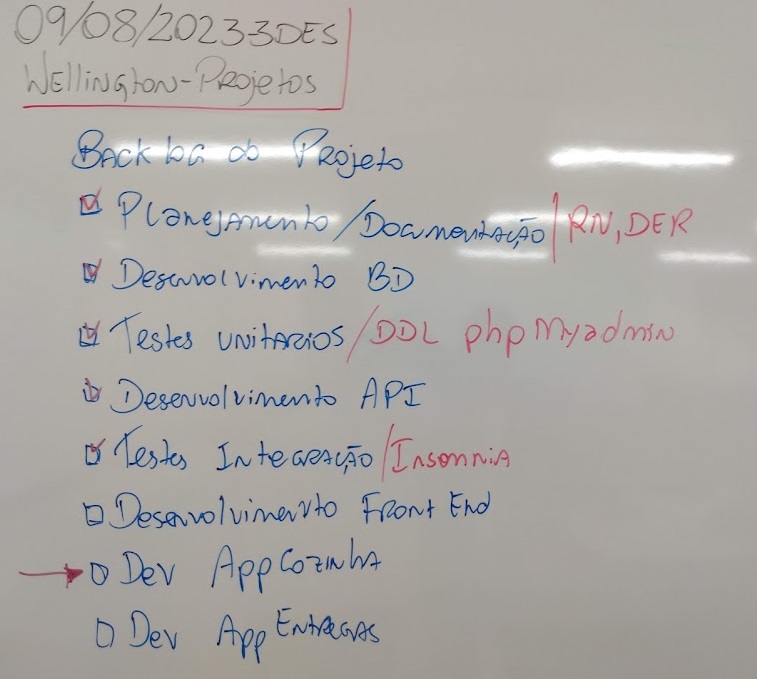 09/08/2023-3DES
Wellington-Projetos
Backlog do Projeto
Planejamento/Documentação/RN, DER
Desenvolvimento BD
Testes unitarios/DDL phpMyadmin
Desenvolvimento API
Testes Integração/Insomnia
Desenvolvimento Front End
Dev App Cozinha
Dev App Entregas